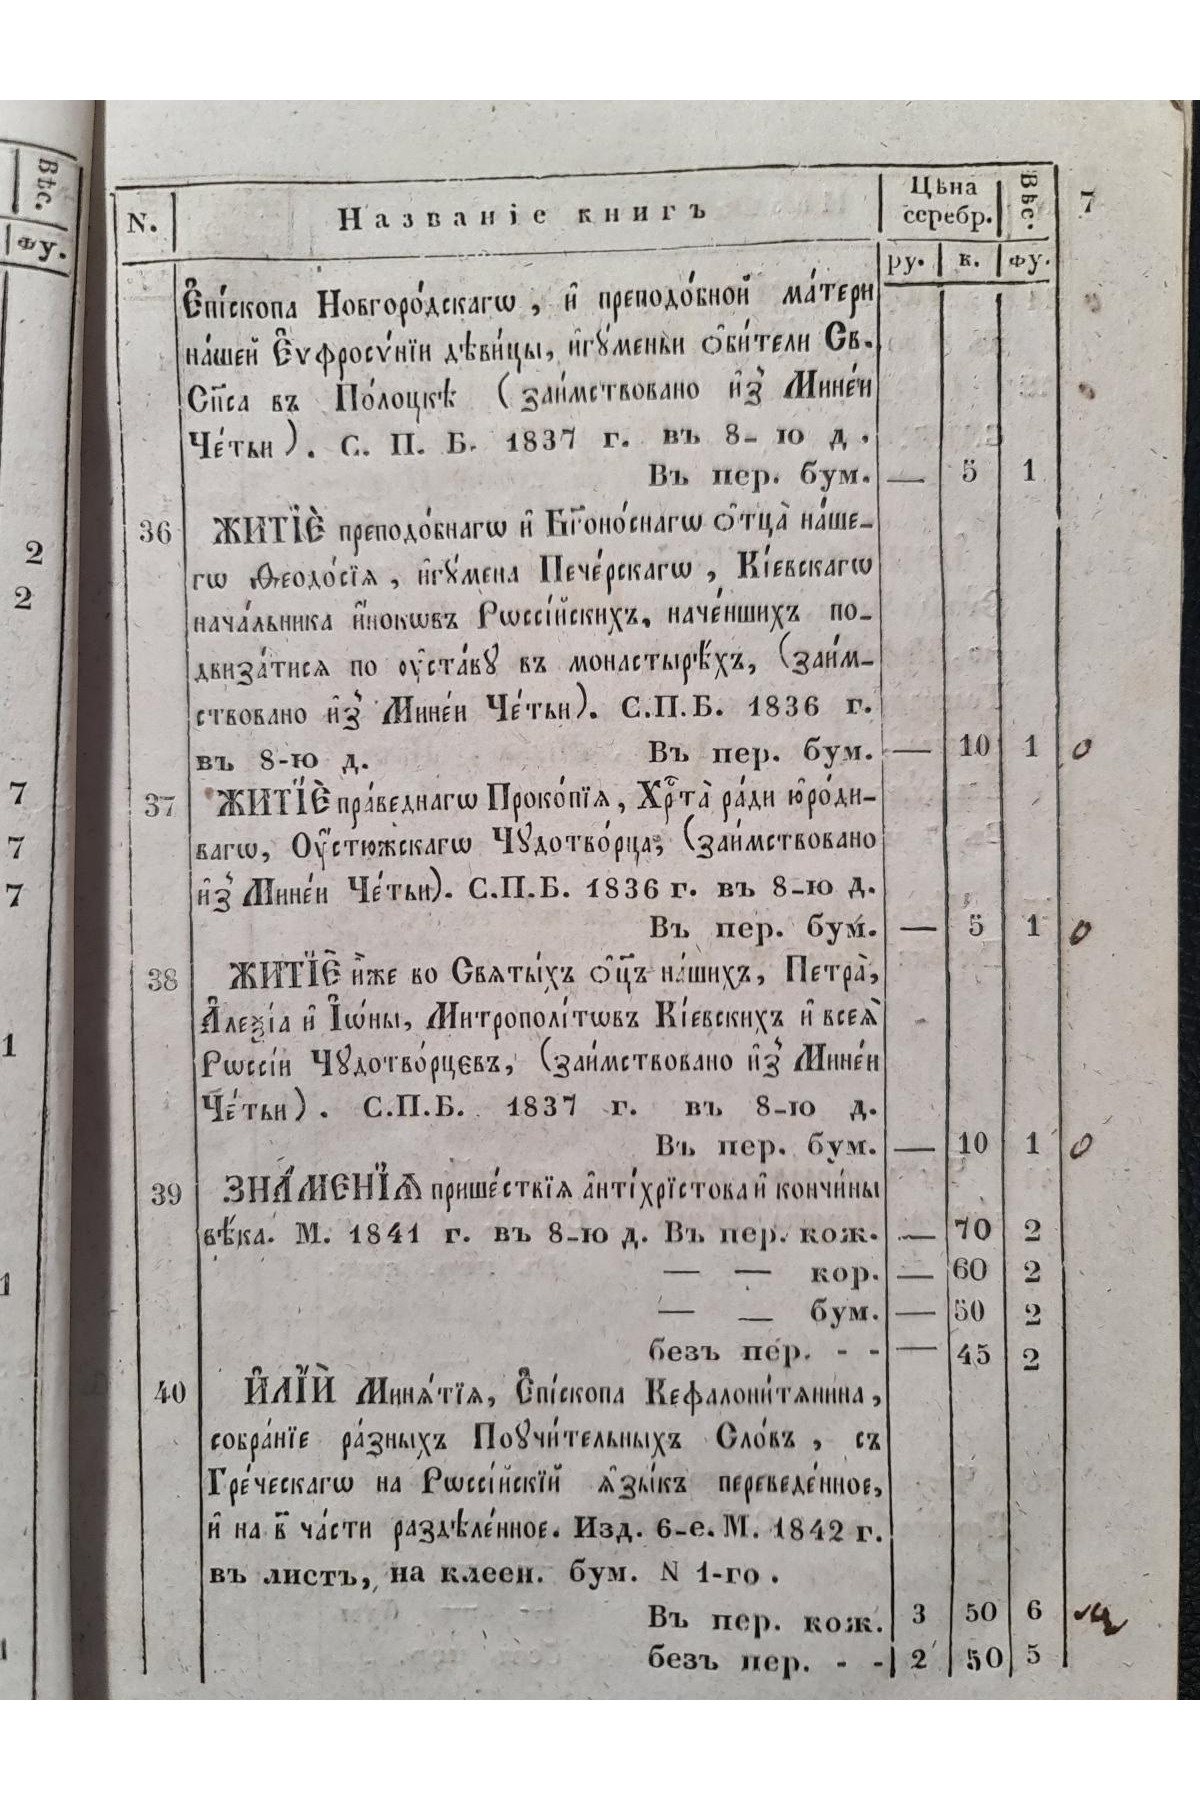 Вѣс.
фу.
2
2
7
7
7
1
1
7
N. Названіе книгъ Цѣна серебр. Вѣс.
ру. к. фу.
Є҆пі́скопа Новгоро́дскагѡ, и҆ преподо́бной ма́тери
на́шей Є҆ѵфросѵ́нїи дѣви́цы, и҆гꙋ́меньи ѻ҆би́тели Св.
Сп҃са въ По́лоцкѣ (заи́мствовано и҆з̾ Мине́и
Че́тьи). С. П. Б. 1837 г. въ 8-ю д.
Въ пер. бум. — 5 1
36 ЖИТЇЀ преподо́бнагѡ и҆ Бг҃оно́снагѡ ѻ҆тца̀ на́ше-
гѡ Ѳеодо́сїѧ, и҆гꙋ́мена Пече́рскагѡ, Кі́евскагѡ
нача́льника и҆́нокѡвъ Рѡссі́йскихъ, наче́ншихъ по-
двиза́тисѧ по ᲂу҆ста́вꙋ въ монастырѣ́хъ, (заи́м-
ствовано и҆з̾ Мине́и Че́тьи). С.П.Б. 1836 г.
въ 8-ю д. Въ пер. бум. — 10 1 0
37 ЖИТЇЀ пра́веднагѡ Проко́пїѧ, Хрⷭ҇та̀ ра́ди ю҆ро́ди-
вагѡ, Оу҆́стюжскагѡ Чꙋдотво́рца; (заи́мствовано
и҆з̾ Мине́и Че́тьи). С.П.Б. 1836 г. въ 8-ю д.
Въ пер. бум. — 5 1 0
38 ЖИТЇЀ и҆́же во Свѧты́хъ ѻ҆ц҃ъ на́шихъ, Петра̀,
А҆леѯі́а и҆ І҆ѡ́ны, Митрополі́тѡвъ Кі́евскихъ и҆ всеѧ̀
Рѡссі́и Чꙋдотво́рцєвъ, (заи́мствовано и҆з̾ Мине́и
Че́тьи). С.П.Б. 1837 г. въ 8-ю д.
Въ пер. бум. — 10 1 0
39 ЗНА́МЕНЇѦ прише́ствїѧ а҆нті́хрїстова и҆ кончи́ны
вѣ́ка. М. 1841 г. въ 8-ю д. Въ пер. кож. — 70 2
— — кор. — 60 2
— — бум. — 50 2
безъ пер. - - — 45 2
40 И҆ЛЇЍ Минѧ́тїѧ, Є҆пі́скопа Кефалони́тѧнина,
собра́нїе ра́зныхъ Поꙋчи́тельныхъ Сло́въ, съ
Гре́ческагѡ на Рѡссі́йскїй ѧ҆зы́къ переведе́нное,
и҆ на в҃ ча́сти раздѣле́нное. Изд. 6-е. М. 1842 г.
въ листъ, на клеен. бум. N 1-го.
Въ пер. кож. 3 50 6
безъ пер. - - 2 50 5